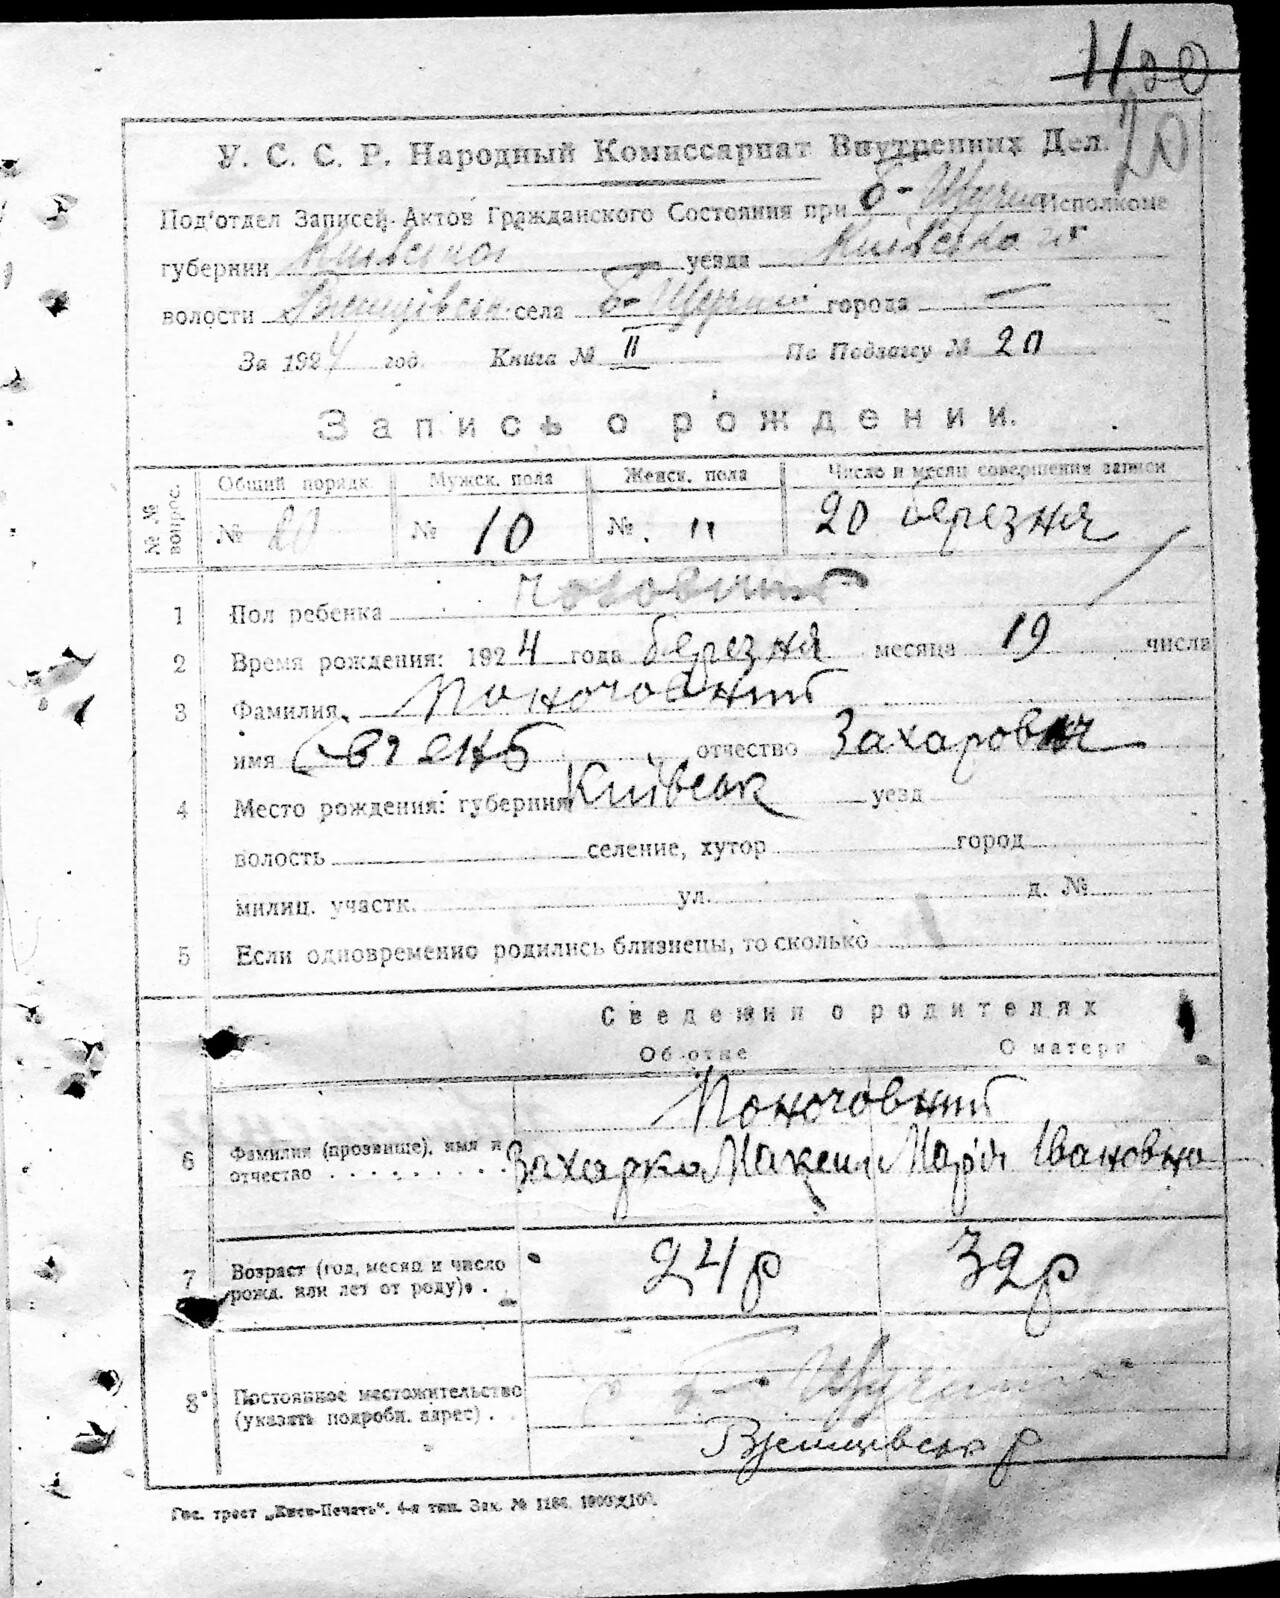 11 20
20
У. С. С. Р. Народный Комиссариат Внутренних Дел.
Под'отдел Записей Актов Гражданского Состояния при Б-Щучин Исполкоме
губернии Київської уезда Київсько го
волости села Б-Щучин города —
За 1924 год. Книга № II По Подлогсу № 20
Запись о рождении.
№ № вопрос. Общий порядк. Мужск. пола Женск. пола Число и месяц совершения записи
№ 20 № 10 № " 20 березня
1 Пол ребенка Чоловичий
2 Время рождения: 1924 года березня месяца 19 числа
3 Фамилия Поночовний
имя отчество Захарович
4 Место рождения: губерния Київськ уезд
волость селение, хутор город
милиц. участк. ул. д. №
5 Если одновременно родились близнецы, то сколько
Сведения о родителях
Об отце О матери
Поночовний
6 Фамилия (прозвище), имя и отчество Захарко Максим Марія Івановна
7 Возраст (год, месяц и число рожд. или лет от роду). 24 р 32 р
8 Постоянное местожительство (указать подробн. адрес) . с Б-Щучин
р
Гос. трест „Киев-Печать“. 4-я тип. Зак. № 1186. 1000×100.